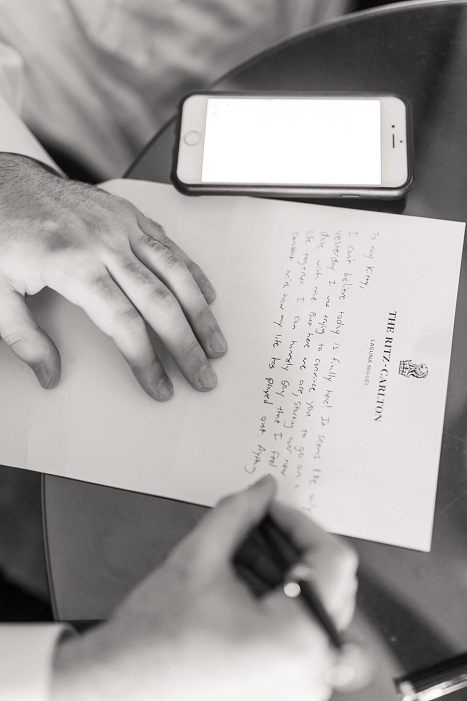 THE RITZ-CARLTON
LAGUNA NIGUEL
To my Kitty,
I can't believe today is finally here! It seems like only
yesterday I was trying to convince you to go on a
date with me. But here we are, starting our new
life together. I can honestly say that I feel
content with how my life has played out.